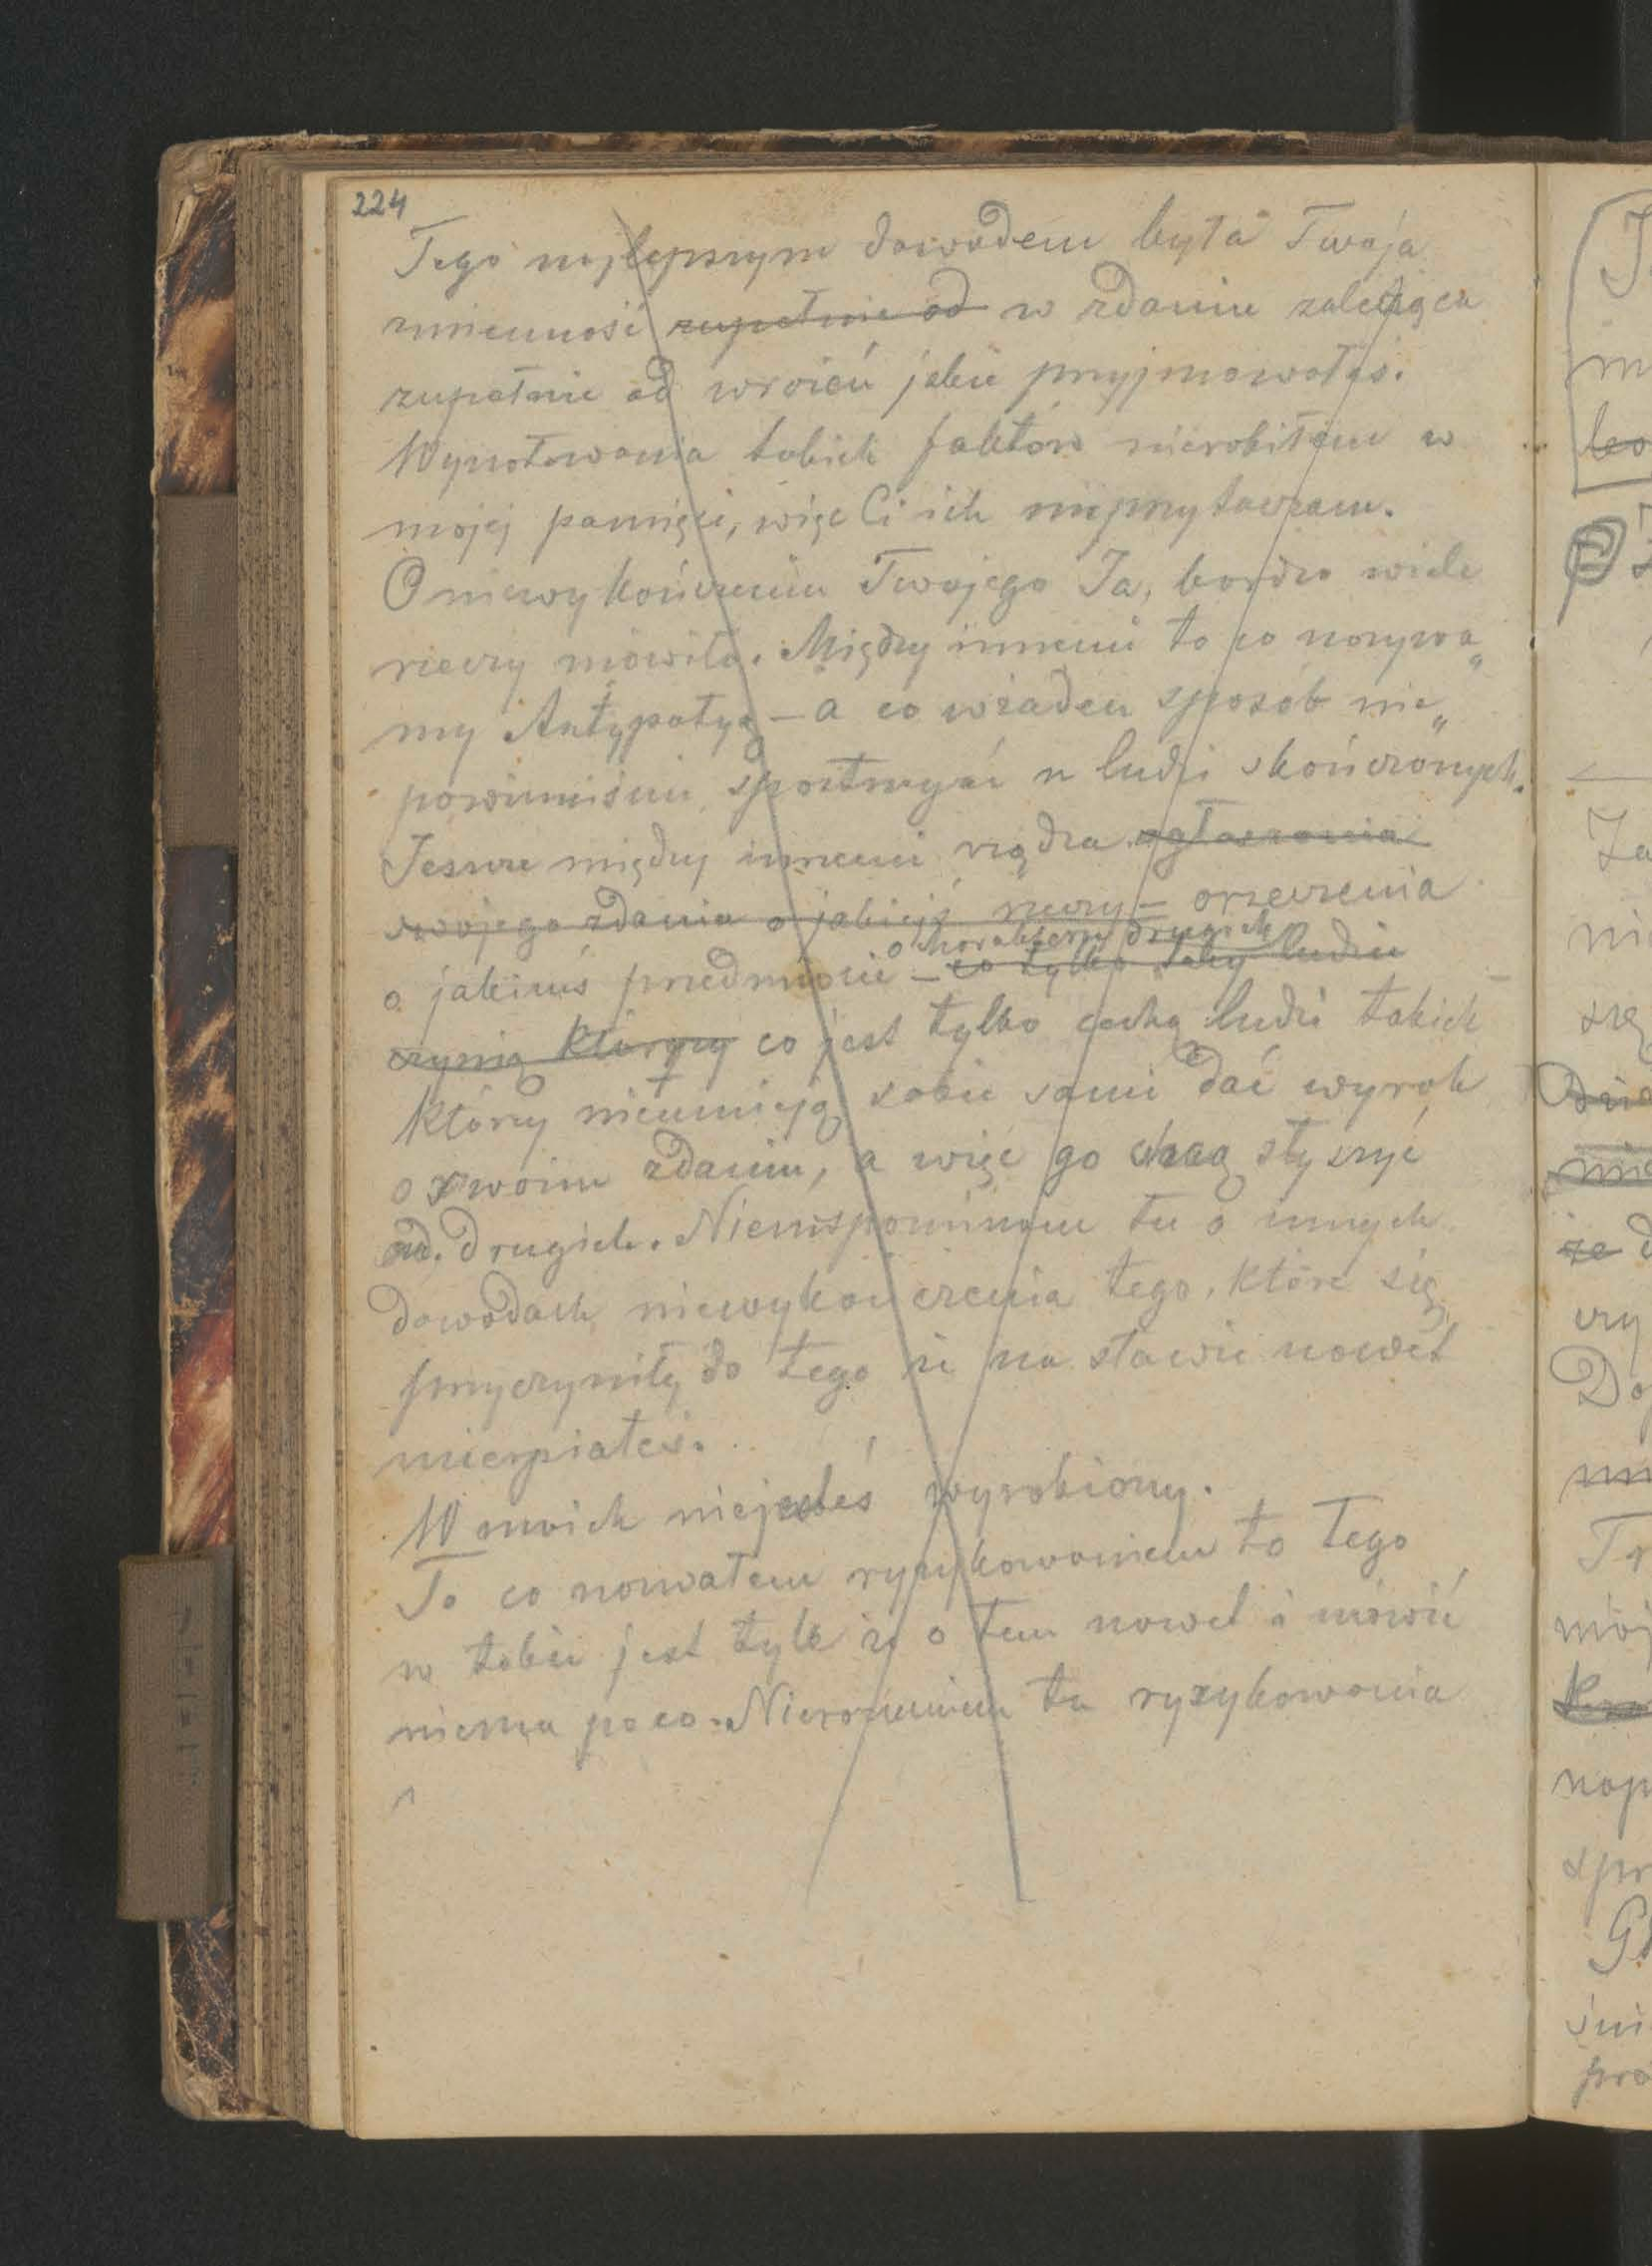 224
Tego najlepszym dowodem była Twoja
zmienność zupełnie od w zdaniu zależąca
zupełnie od wrażeń jakie przyjmowałaś.
Wynotowania takich faktów nierobiłem w
mojej pamięci, więc Ci ich nieprzytaczam.
O niewykończeniu Twojego Ja, bardzo wiele
rzeczy mówiło. Między innemi to co nazywa„
my Antypatyą – a co wżaden sposób nie„
powinniśmy spostrzegać u ludzi skończonych.
Jeszcze między innemi rządza ogłaszania
swojego zdania o jakiejś rzeczy – orzeczenia
o charakterze drugich
o jakimś przedmiocie – co tylko tacy ludzie
czynią którzy co jest tylko cechą ludzi takich
którzy nieumieją sobie sami dać wyrok
o swoim zdaniu, a więc go chcą słyszyć
od drugich. Niewspominam tu o innych
dowodach niewykończenia tego, które się
przyczyniły do tego że na sławie nawet
niecierpiałeś.
W niejesteś wyrobiony.
To co nazwałem ryzykowaniem to tego
w tobie jest tyle że o tem nawet i mówić
niema poco. Nierozumiem tu ryzykowania